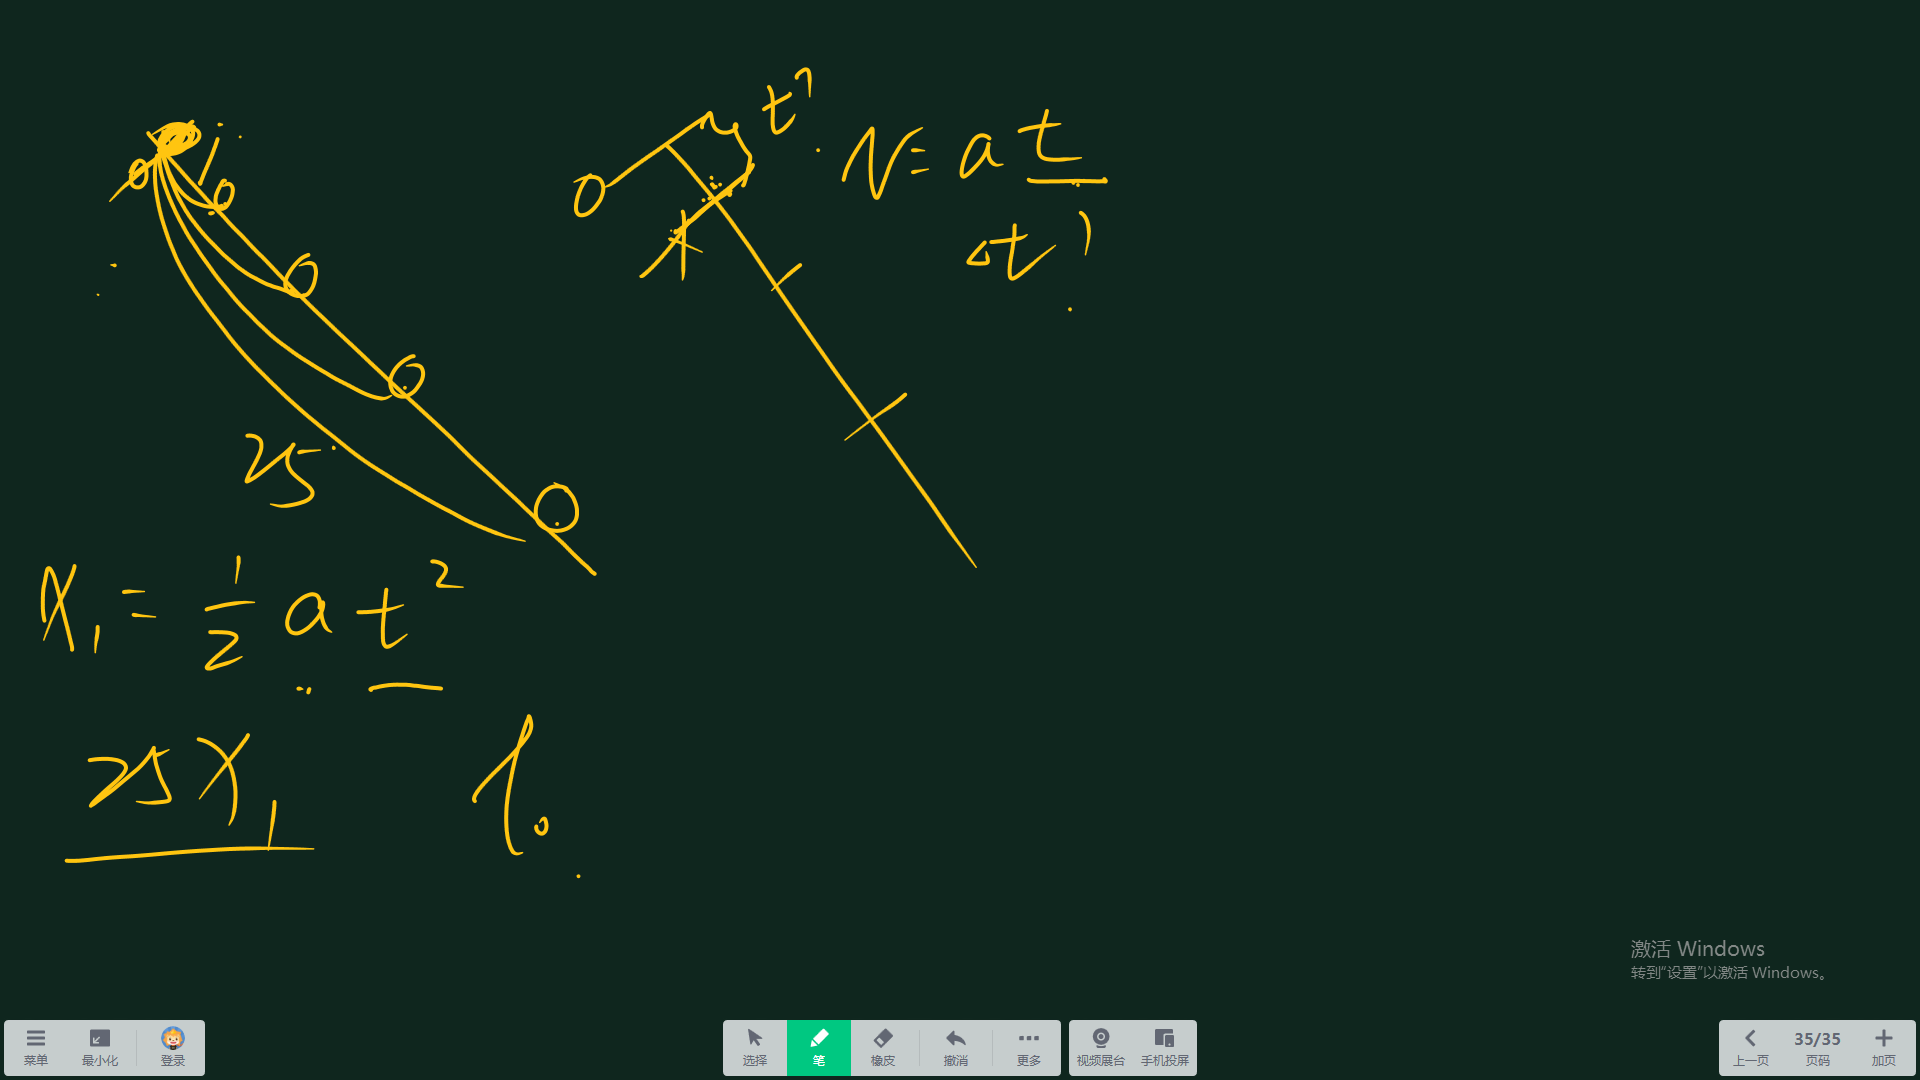 0
0
0
0
0
25
X₁ = 1/2 a t²
25X₁
t'
0
V = a t
Δt'
激活 Windows
转到“设置”以激活 Windows。
菜单
最小化
登录
选择
笔
橡皮
撤消
更多
视频展台
手机投屏
上一页
35/35
页码
加页